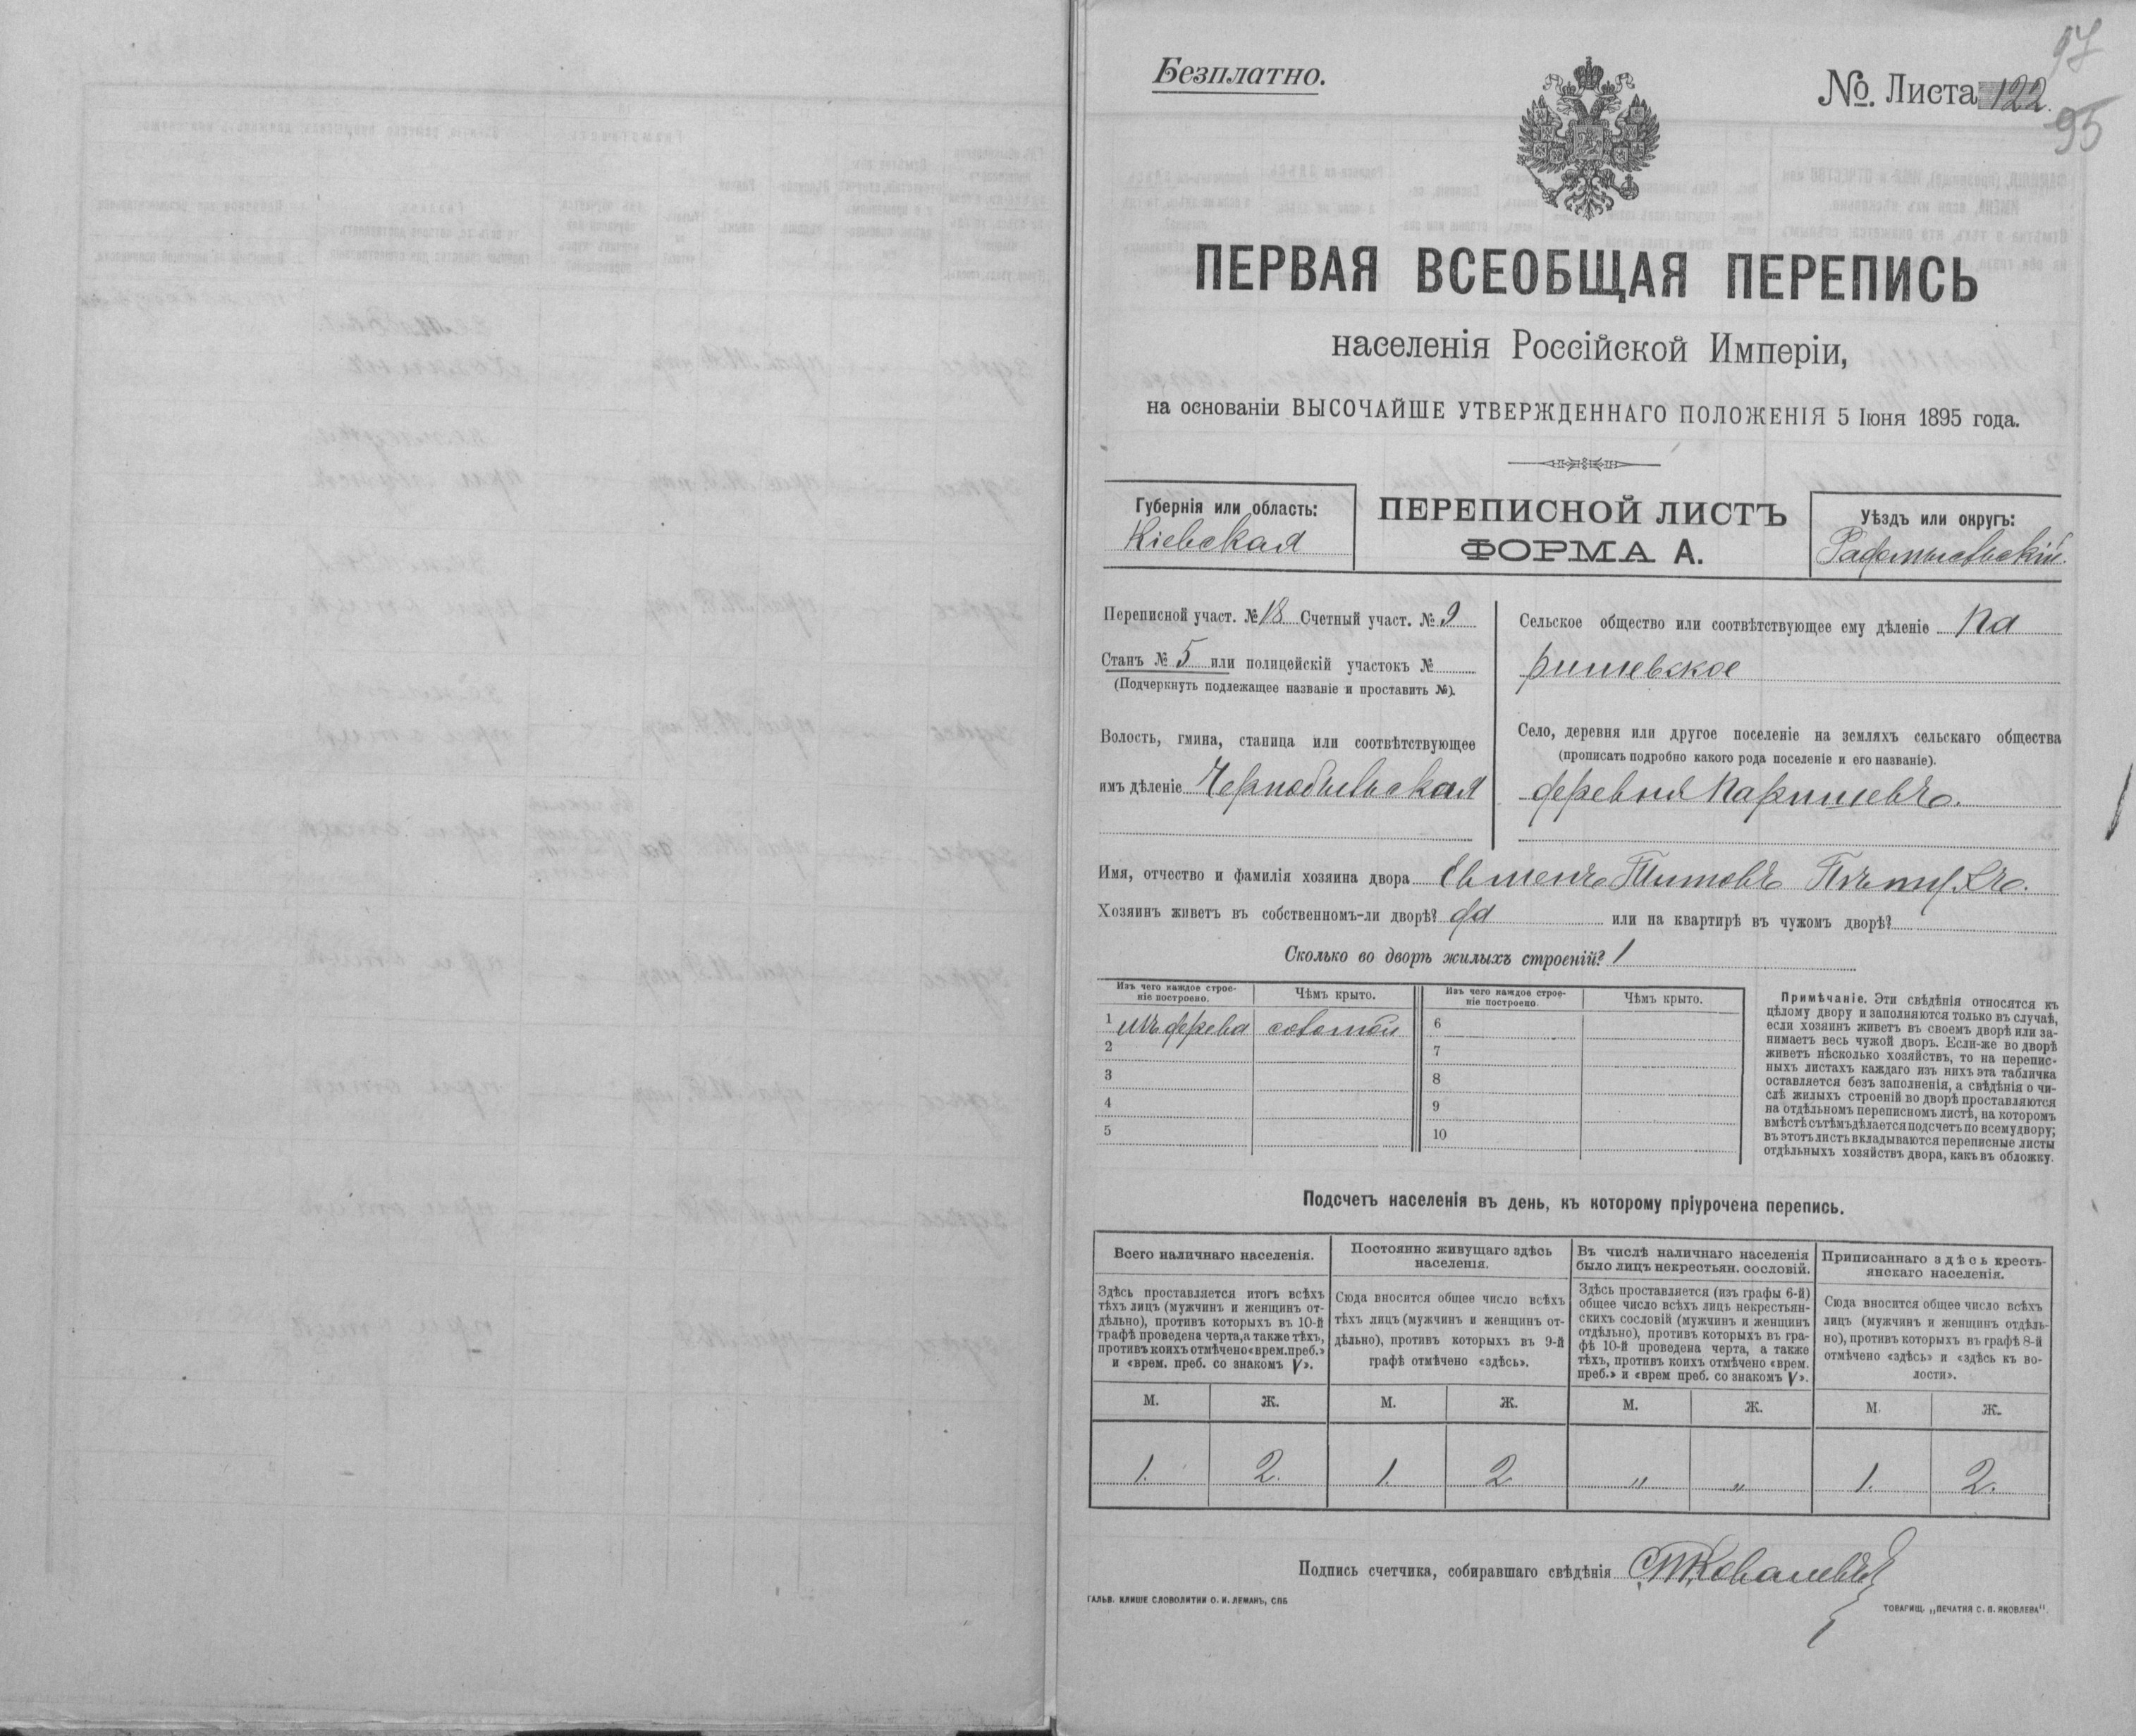 97
Безплатно.
№. Листа 122.
95
ПЕРВАЯ ВСЕОБЩАЯ ПЕРЕПИСЬ
населенія Россійской Имперіи,
на основаніи ВЫСОЧАЙШЕ УТВЕРЖДЕННАГО ПОЛОЖЕНІЯ 5 Іюня 1895 года.
Губернія или область:
Кіевская
ПЕРЕПИСНОЙ ЛИСТЪ
ФОРМА А.
Уѣздъ или округъ:
Радомысльскій.
Переписной участ. № 18 Счетный участ. № 9
Станъ № 5 или полицейскій участокъ №
(Подчеркнуть подлежащее названіе и проставить №).
Волость, гмина, станица или соотвѣтствующее
имъ дѣленіе Чернобыльская
Сельское общество или соотвѣтствующее ему дѣленіе Па
ришевское
Село, деревня или другое поселеніе на земляхъ сельскаго общества
(прописать подробно какого рода поселеніе и его названіе).
деревня Паришевъ.
Имя, отчество и фамилія хозяина двора Титовъ
Хозяинъ живетъ въ собственномъ-ли дворѣ? да или на квартирѣ въ чужомъ дворѣ?
Сколько во дворѣ жилыхъ строеній? 1
Изъ чего каждое строе-
ніе построено.
Чѣмъ крыто.
Изъ чего каждое строе-
ніе построено.
Чѣмъ крыто.
1 изъ дерева соломой 6
2 7
3 8
4 9
5 10
Примѣчаніе. Эти свѣдѣнія относятся къ
цѣлому двору и заполняются только въ случаѣ,
если хозяинъ живетъ въ своемъ дворѣ или за-
нимаетъ весь чужой дворъ. Если-же во дворѣ
живетъ нѣсколько хозяйствъ, то на перепис-
ныхъ листахъ каждаго изъ нихъ эта табличка
оставляется безъ заполненія, а свѣдѣнія о чи-
слѣ жилыхъ строеній во дворѣ проставляются
на отдѣльномъ переписномъ листѣ, на которомъ
вмѣстѣ съ тѣмъ дѣлается подсчетъ по всему двору;
въ этотъ листъ вкладываются переписные листы
отдѣльныхъ хозяйствъ двора, какъ въ обложку.
Подсчетъ населенія въ день, къ которому пріурочена перепись.
Всего наличнаго населенія.
Здѣсь проставляется итогъ всѣхъ
тѣхъ лицъ (мужчинъ и женщинъ от-
дѣльно), противъ которыхъ въ 10-й
графѣ проведена черта, а также тѣхъ,
противъ коихъ отмѣчено «врем. преб.»
и «врем. преб. со знакомъ V».
Постоянно живущаго здѣсь
населенія.
Сюда вносится общее число всѣхъ
тѣхъ лицъ (мужчинъ и женщинъ от-
дѣльно), противъ которыхъ въ 9-й
графѣ отмѣчено «здѣсь».
Въ числѣ наличнаго населенія
было лицъ некрестьян. сословій.
Здѣсь проставляется (изъ графы 6-й)
общее число всѣхъ лицъ некрестьян-
скихъ сословій (мужчинъ и женщинъ
отдѣльно), противъ которыхъ въ гра-
фѣ 10-й проведена черта, а также
тѣхъ, противъ коихъ отмѣчено «врем.
преб.» и «врем преб. со знакомъ V».
Приписаннаго здѣсь кресть-
янскаго населенія.
Сюда вносится общее число всѣхъ
лицъ (мужчинъ и женщинъ отдѣль-
но), противъ которыхъ въ графѣ 8-й
отмѣчено «здѣсь» и «здѣсь къ во-
лости».
М. Ж. М. Ж. М. Ж. М. Ж.
1. 2. 1. 2 " " 1. 2.
Подпись счетчика, собиравшаго свѣдѣнія
ГАЛЬВ. КЛИШЕ СЛОВОЛИТНИ О. И. ЛЕМАНЪ, СПБ
ТОВАРИЩ. „ПЕЧАТНЯ С. П. ЯКОВЛЕВА"